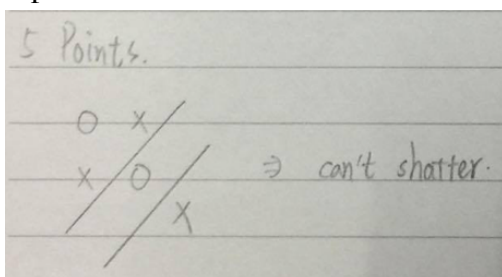 5 Points.
O X
X O ⇒ can't shatter.
X